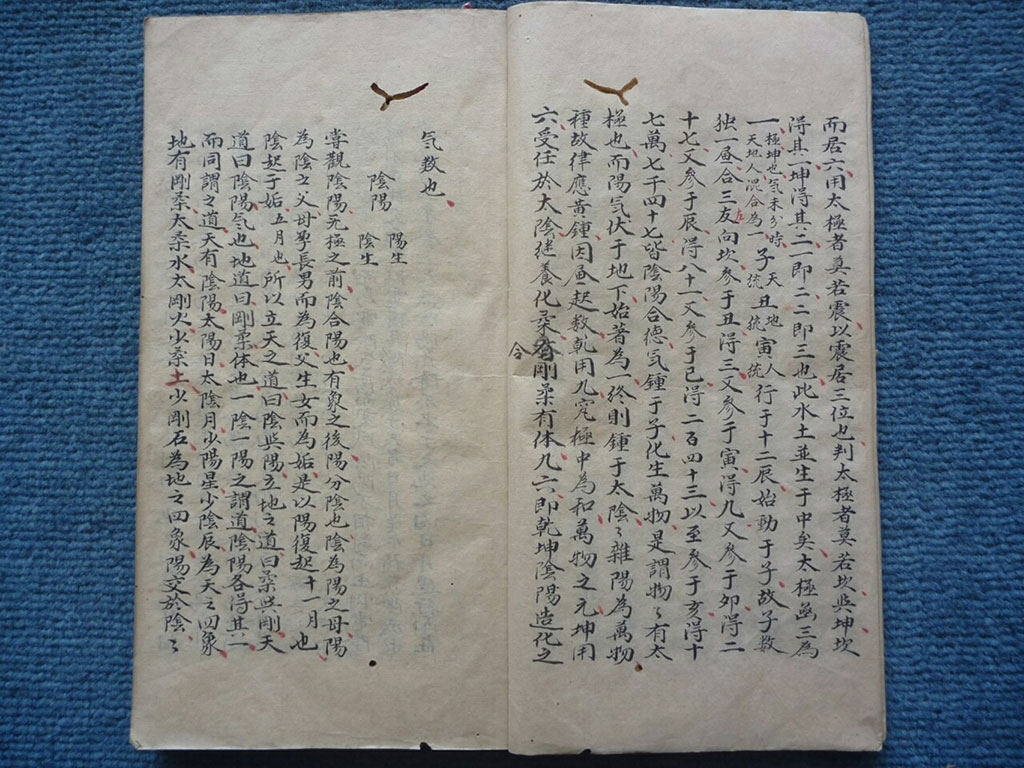 而居六用太極者莫若震以震居三位也判太極者莫若坎與坤坎
得其一坤得其二一即二二即三也此水土並生于中矣太極函三為
一極坤也気未分時天地人混合為一子天統丑地統寅人統行于十二辰始動于子故子数
独一昼合三友向坎参于丑得三又参于寅得九又参于卯得二
左
十七又参于辰得八十一又参于巳得二百四十三以至参于亥得十
七萬七千四十七皆陰陽合徳気鍾于子化生萬物是謂物々有太
極也而陽気伏于地下始著為一終則鍾于太陰々雑陽為萬物
種故律應黄鍾因而起数乾用九究極中為和萬物之元坤用
六受任於太陰継養化柔有剛柔有体九六即乾坤陰陽造化之
令
気数也
陰陽
陽生
陰生
嘗観陰陽无極之前陰合陽也有象之後陽分陰也陰為陽之母陽
為陰之父母孕長男而為復父生女而為姤是以陽復起十一月也
陰起于姤五月也所以立天之道曰陰與陽立地之道曰柔與剛天
道曰陰陽気也地道曰剛柔体也一陰一陽之謂道陰陽各得其二
而同謂之道天有陰陽太陽日太陰月少陽星少陰辰為天之四象
地有剛柔太柔水太剛火少柔土少剛石為地之四象陽交於陰々